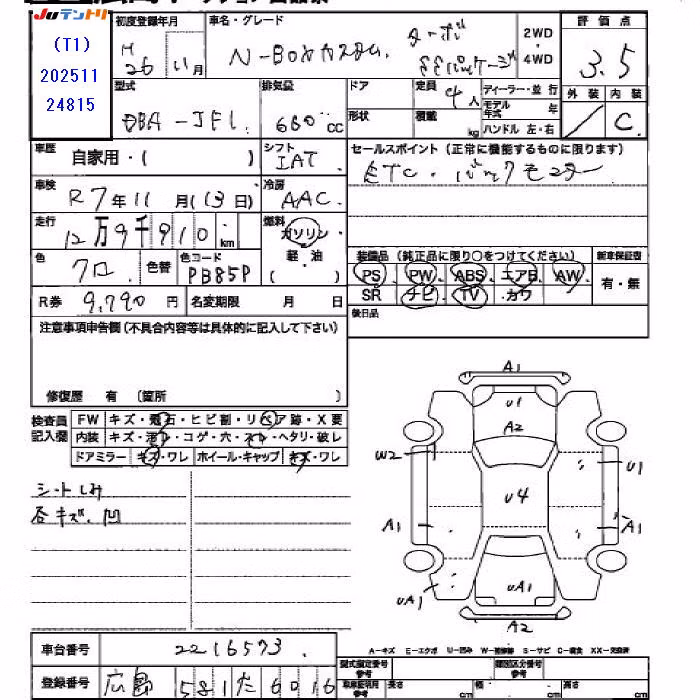 Juテントリ
(T1)
202511
24815
初度登録年月
H
26 年 11 月
車名・グレード
N-BOXカスタム ターボ
SSパッケージ
2WD
・
4WD
評 価 点
3.5
外 装 内 装
C
型式
DBA - JF1
排気量
660 CC
ドア
形状
定員 4 人
積載 kg
ディーラー・並 行
モデル年式 年
ハンドル 左・右
車歴
自家用・( )
シフト
IAT
セールスポイント (正常に機能するものに限ります)
ETC. バックモニター
車検
R7年11月(13日)
冷房
AAC
走行
12万9千910 km
燃料
ガソリン
軽・油
( )
色
クロ
色替
色コード
PB85P
装備品 (純正品に限り○をつけてください)
新車保証書
PS PW ABS エアB AW
有・無
SR ナビ TV カワ
R券 9,790 円
名変期限 月 日
後日品
注意事項申告欄(不具合内容等は具体的に記入して下さい)
修復歴 有 (箇所 )
検査員
記入欄
FW キズ・飛石・ヒビ割・リペア跡・X要
内装 キズ・汚れ・コゲ・穴・スレ・ヘタリ・破レ
ドアミラー キズ・ワレ ホイール・キャップ キズ・ワレ
シートしみ
各キズ、凹
A1
U1
A2
W2
U1
U4
A1
A1
UA1
UA1
A2
車台番号 2216573
A-キズ E-エクボ U-凹み W-補修跡 S-サビ C-腐食 XX-交換済
登録番号 広島 581 た 6016
型式指定番号
参考
類別区分番号
参考
車庫証明用
参考
長さ cm
幅 cm
高さ cm